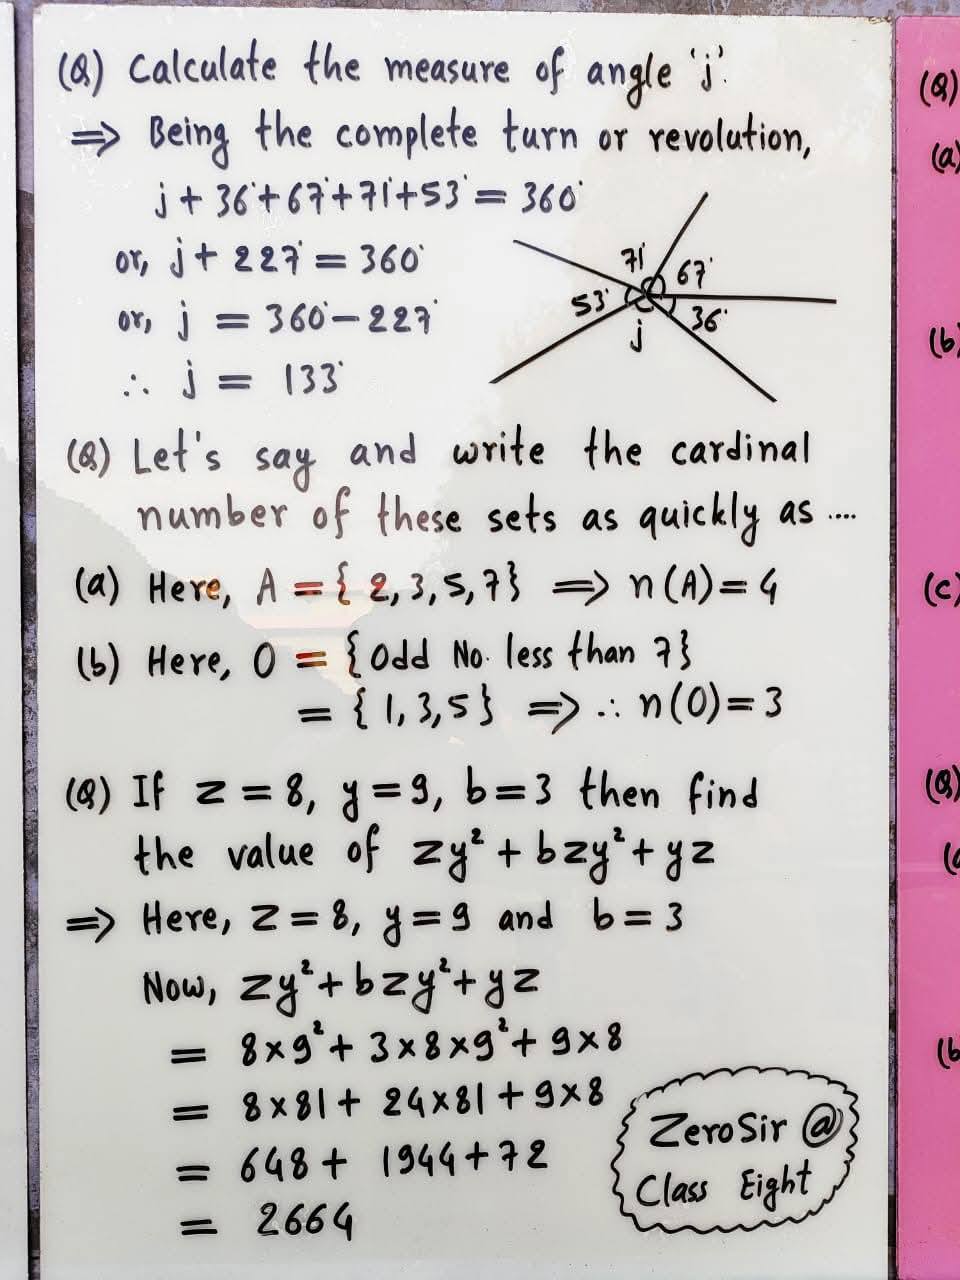 (Q) Calculate the measure of angle 'j'.
⇒ Being the complete turn or revolution,
j + 36° + 67° + 71° + 53° = 360°
or, j + 227° = 360°
or, j = 360° - 227°
∴ j = 133°
71°
67°
53°
36°
j
(Q) Let's say and write the cardinal
number of these sets as quickly as ....
(a) Here, A = { 2, 3, 5, 7} ⇒ n(A) = 4
(b) Here, O = { Odd No. less than 7}
= { 1, 3, 5} ⇒ ∴ n(O) = 3
(Q) If z = 8, y = 9, b = 3 then find
the value of zy² + bzy² + yz
⇒ Here, z = 8, y = 9 and b = 3
Now, zy² + bzy² + yz
= 8×9² + 3×8×9² + 9×8
= 8×81 + 24×81 + 9×8
= 648 + 1944 + 72
= 2664
ZeroSir @
Class Eight
(Q)
(a)
(b)
(c)
(Q)
(b